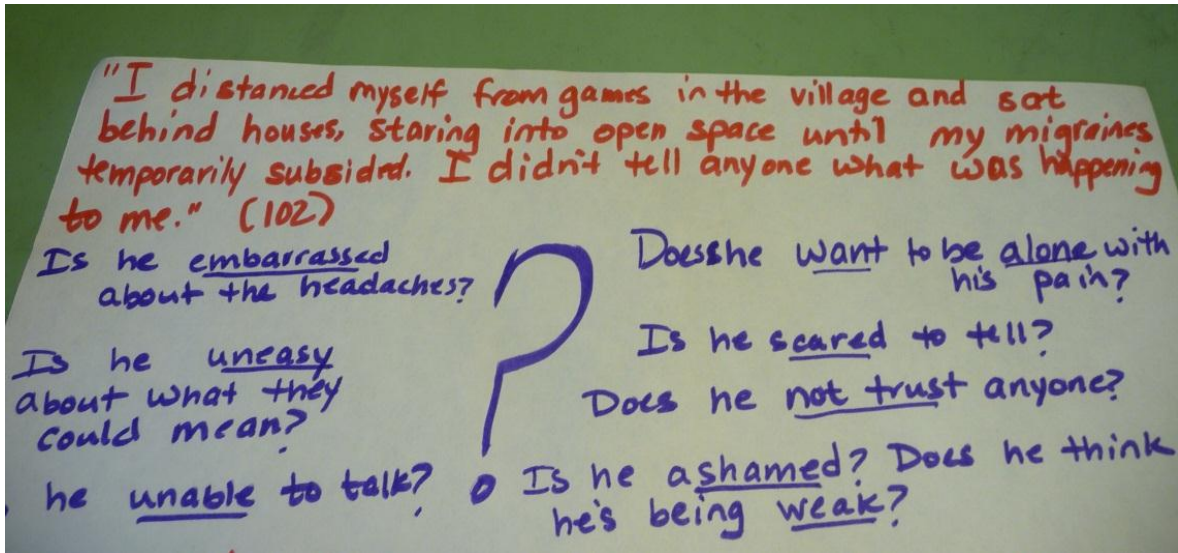 "I distanced myself from games in the village and sat
behind houses, staring into open space until my migraines
temporarily subsided. I didn't tell anyone what was happening
to me." (102)
Is he embarrassed
about the headaches?
Is he uneasy
about what they
could mean?
he unable to talk?
?
Does she want to be alone with
his pain?
Is he scared to tell?
Does he not trust anyone?
Is he ashamed? Does he think
he's being weak?